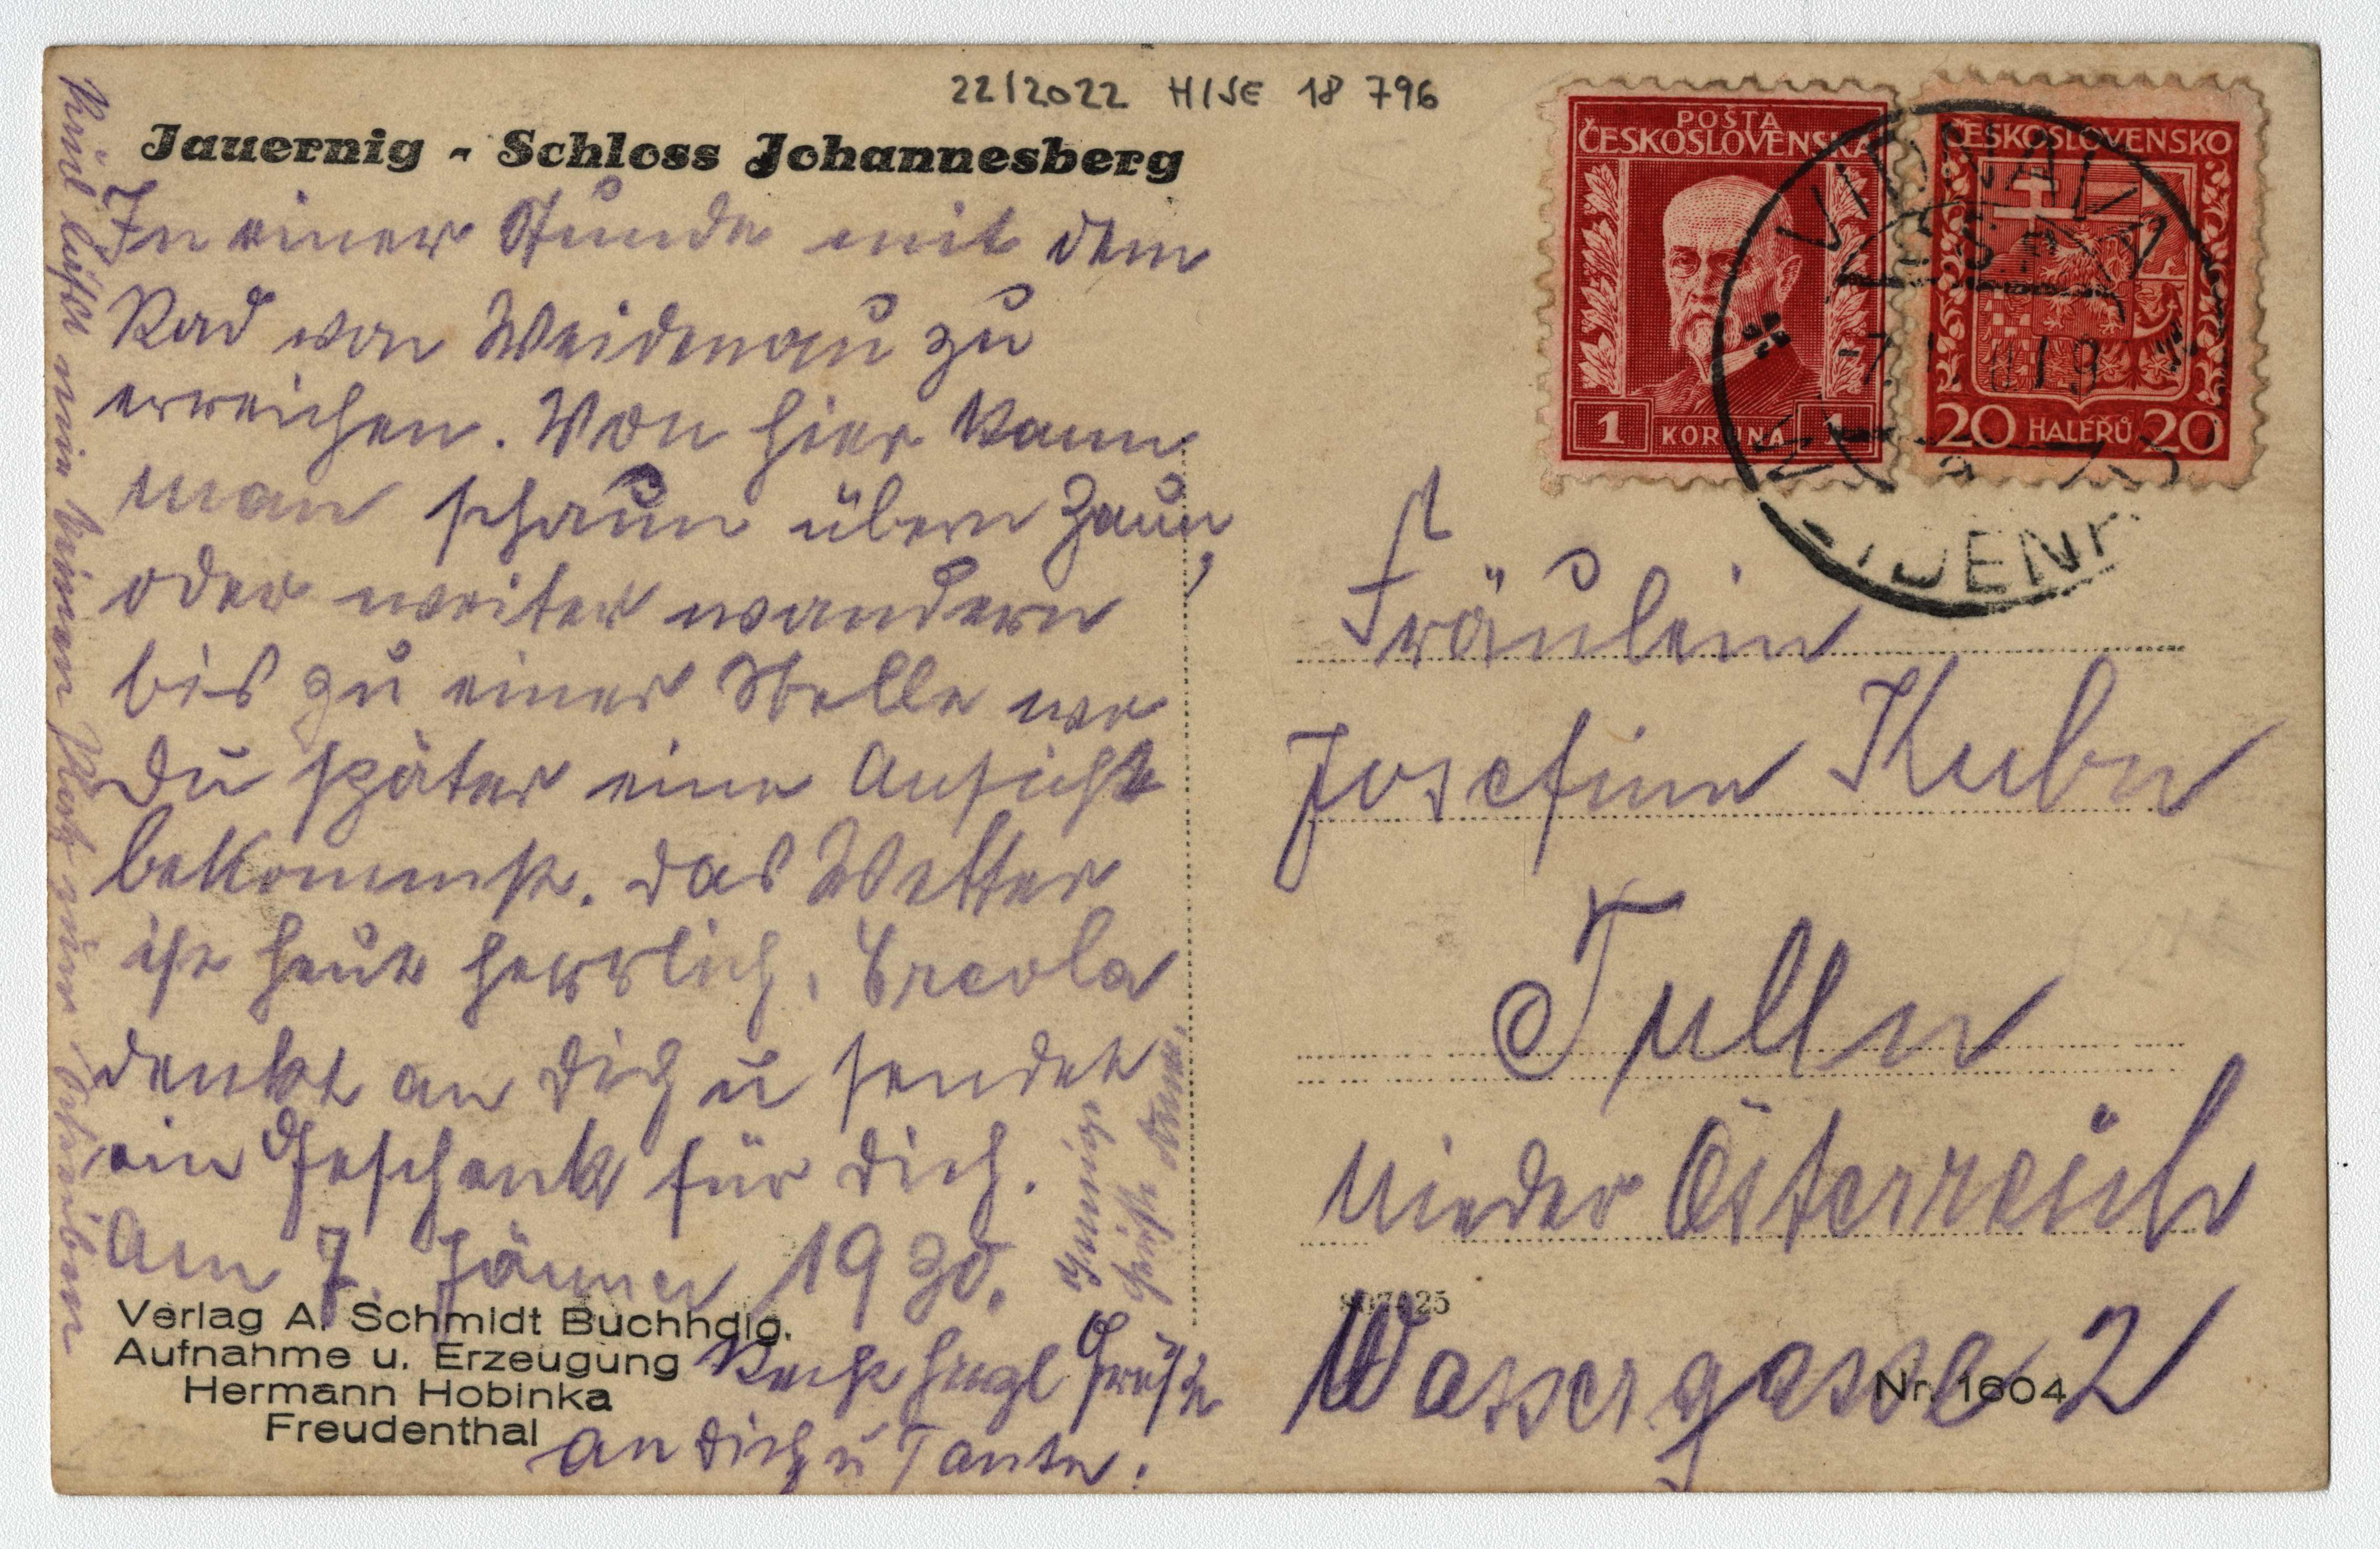 22/2022 H/SE 18 796
Jauernig - Schloss Johannesberg
In einer Stunde mit dem
Rad von Weidenau zu
erreichen. Von hier kann
man schaun übern Zaun,
oder weiter wandern
bis zu einer Stelle wo
Du später eine Ansicht
bekommst. Das Wetter
ist heute herrlich.
denkt an Dich u sendet
ein Geschenk für Dich.
Am 7. Jänner 1930.
Grüße
an Dich u Tante.
mir keinen Platz zum Schreiben
Verlag A. Schmidt Buchhdlg.
Aufnahme u. Erzeugung
Hermann Hobinka
Freudenthal
POŠTA
ČESKOSLOVENSKÁ
1 KORUNA 1
ČESKOSLOVENSKO
20 HALÉŘŮ 20
VIDNAVA
Fräulein
Josefine Kubn
Tulln
Nieder Österreich
Wassergasse 2
Nr. 1604